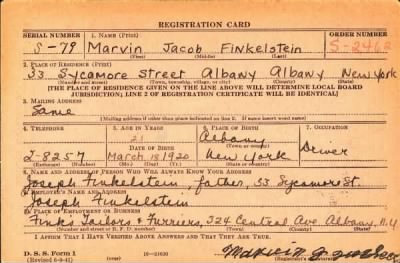 REGISTRATION CARD
SERIAL NUMBER 1. NAME (Print) ORDER NUMBER
S-79 Marvin Jacob Finkelstein S-2462
(First) (Middle) (Last)
2. PLACE OF RESIDENCE (Print)
33 Sycamore Street Albany Albany New York
(Number and street) (Town) (County) (State)
[THE PLACE OF RESIDENCE GIVEN ON THE LINE ABOVE WILL DETERMINE LOCAL BOARD
JURISDICTION; LINE 2 OF REGISTRATION CERTIFICATE WILL BE IDENTICAL]
3. MAILING ADDRESS
Same
[Mailing address if other than place indicated on line 2. If same insert word same]
4. TELEPHONE 5. AGE IN YEARS 6. PLACE OF BIRTH 7. OCCUPATION
21 Albany
DATE OF BIRTH (Town or county)
2-8257 March 18 1920 New York Driver
(Exchange) (Number) (Mo.) (Day) (Yr.) (State or country)
8. NAME AND ADDRESS OF PERSON WHO WILL ALWAYS KNOW YOUR ADDRESS
Joseph Finkelstein, father, 33 Sycamore St.
9. EMPLOYER'S NAME AND ADDRESS
Joseph Finkelstein
10. PLACE OF EMPLOYMENT OR BUSINESS
Fink's Tailors & Furriers, 324 Central Ave. Albany, N.Y
(Number and street or R. F. D. number) (Town) (County) (State)
I AFFIRM THAT I HAVE VERIFIED ABOVE ANSWERS AND THAT THEY ARE TRUE.
D. S. S. Form 1
(Revised 6-9-41) 16—21630 (Registrant's signature)